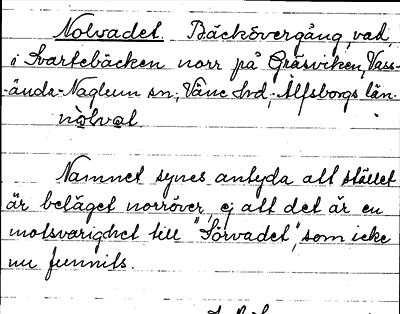 Nolvadet. Bäckövergång, vad,
i Svartebäcken norr på Gräsviken, Väss-
-ända-Naglum sn, Väne hd, Älfsborgs län.
nòlvat
Namnet synes antyda att stället
är beläget norröver, ej att det är en
motsvarighet till "Sörvadet", som icke
nu funnits.